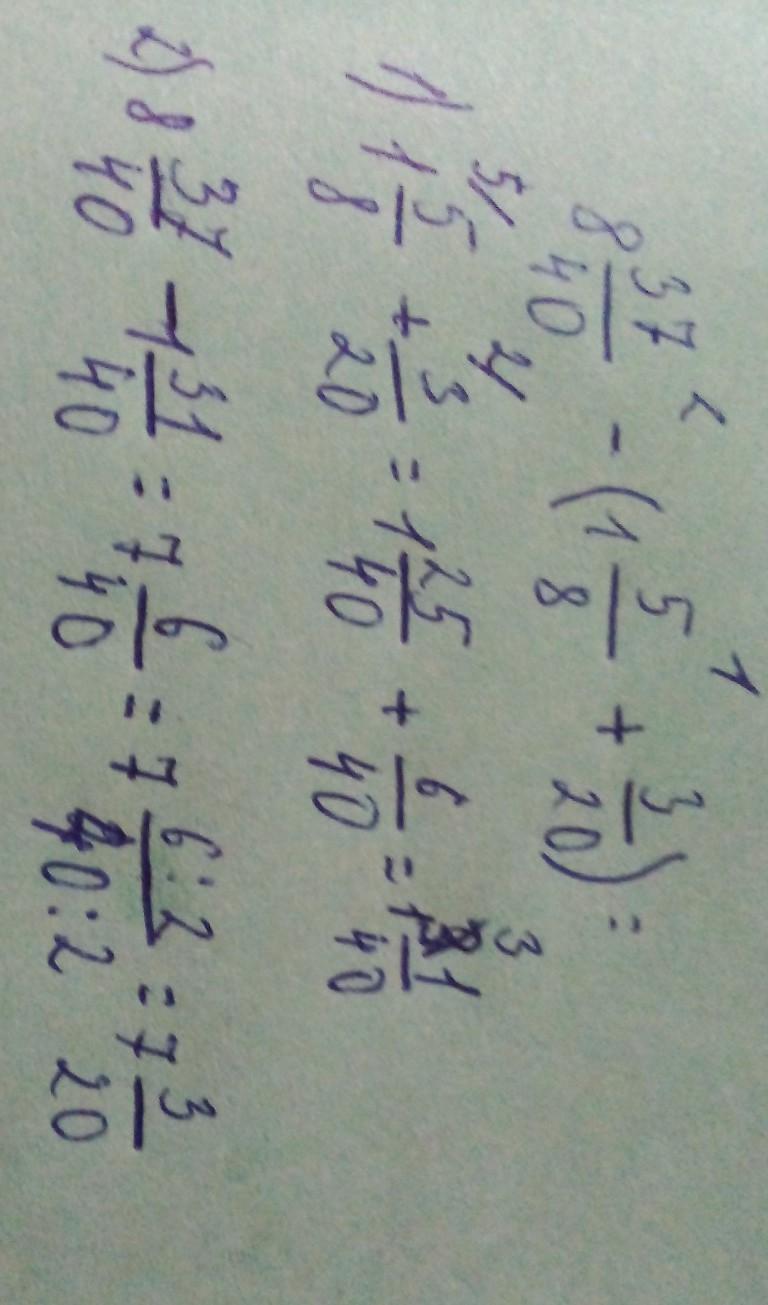 8 37/40 - (1 5/8 + 3/20) =
1) 1 5/8 + 3/20 = 1 25/40 + 6/40 = 1 31/40
2) 8 37/40 - 1 31/40 = 7 6/40 = 7 6:2/40:2 = 7 3/20